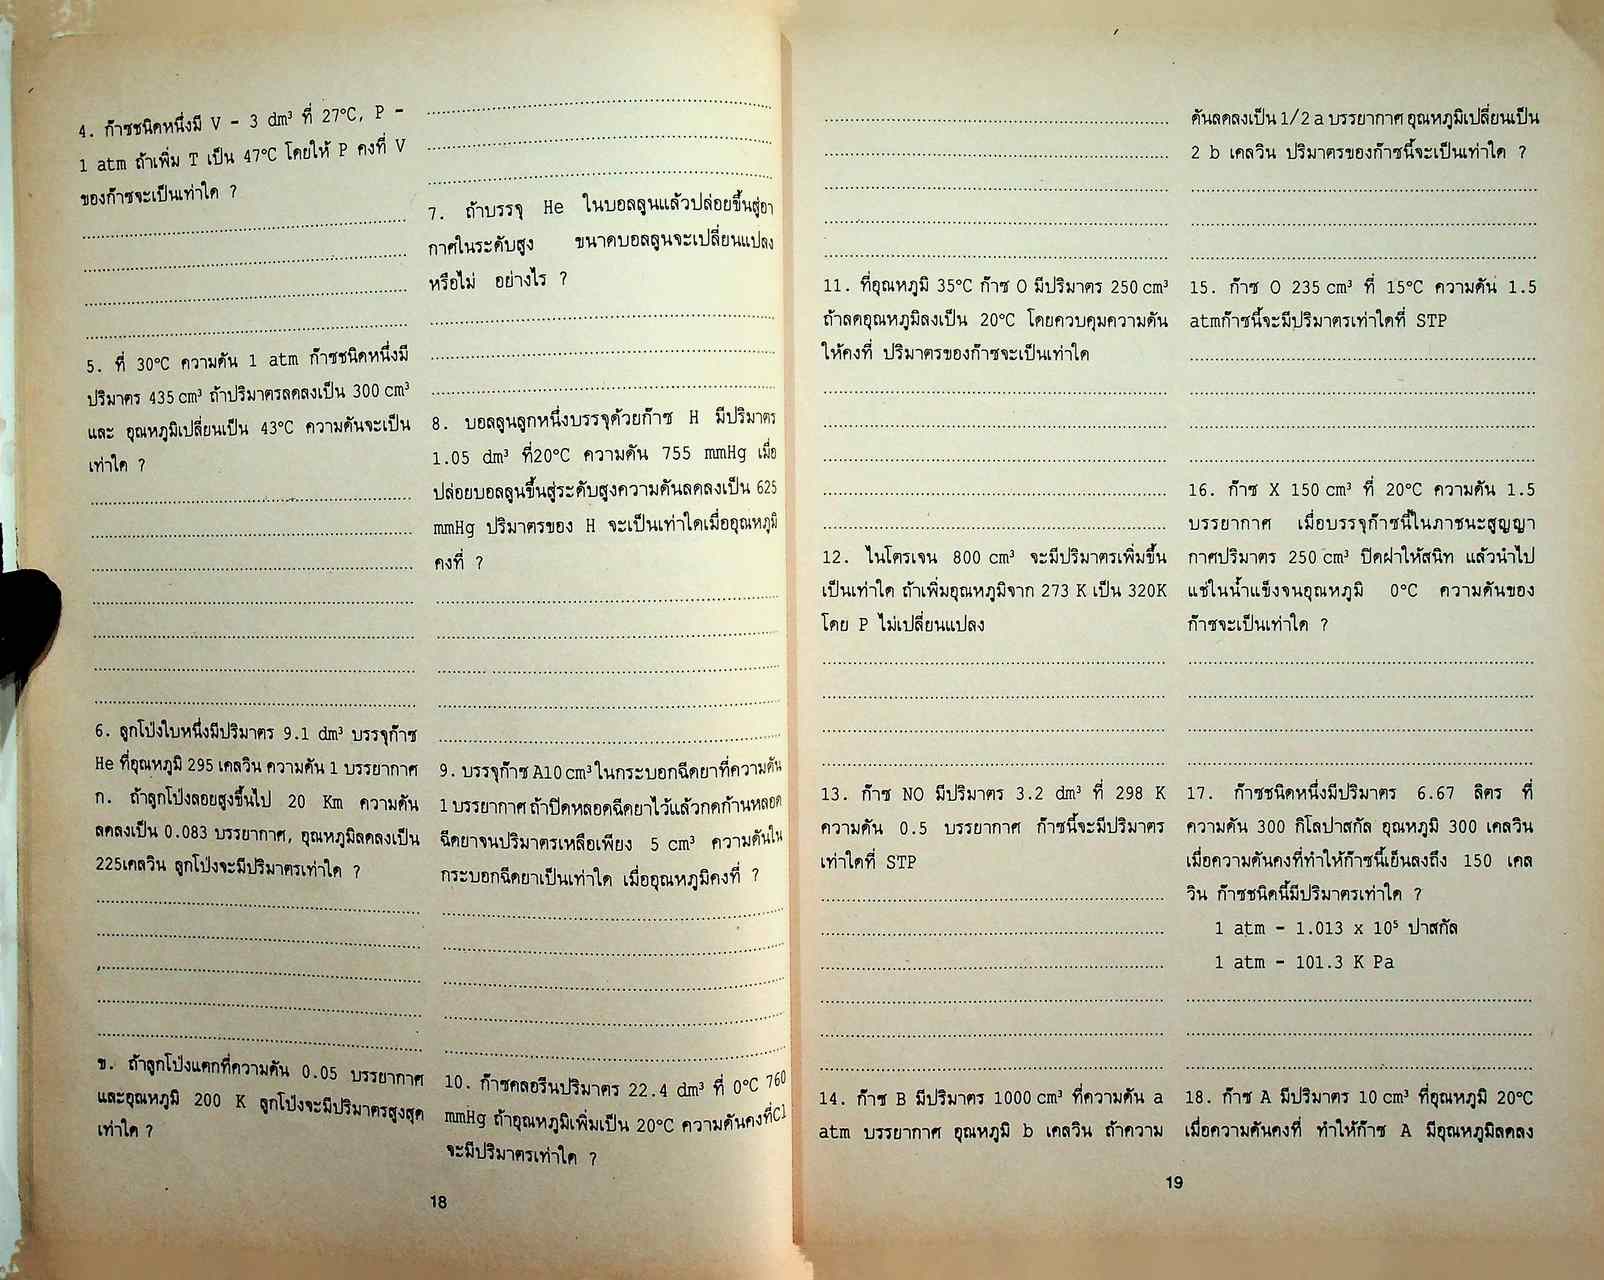 4. ก๊าซชนิดหนึ่งมี V - 3 dm³ ที่ 27°C, P -
1 atm ถ้าเพิ่ม T เป็น 47°C โดยให้ P คงที่ V
ของก๊าซจะเป็นเท่าใด ?
5. ที่ 30°C ความดัน 1 atm ก๊าซชนิดหนึ่งมี
ปริมาตร 435 cm³ ถ้าปริมาตรลดลงเป็น 300 cm³
และ อุณหภูมิเปลี่ยนเป็น 43°C ความดันจะเป็น
เท่าใด ?
6. ลูกโป่งใบหนึ่งมีปริมาตร 9.1 dm³ บรรจุก๊าซ
He ที่อุณหภูมิ 295 เคลวิน ความดัน 1 บรรยากาศ
ก. ถ้าลูกโป่งลอยสูงขึ้นไป 20 Km ความดัน
ลดลงเป็น 0.083 บรรยากาศ, อุณหภูมิลดลงเป็น
225เคลวิน ลูกโป่งจะมีปริมาตรเท่าใด ?
ข. ถ้าลูกโป่งแตกที่ความดัน 0.05 บรรยากาศ
และอุณหภูมิ 200 K ลูกโป่งจะมีปริมาตรสูงสุด
เท่าใด ?
7. ถ้าบรรจุ He ในบอลลูนแล้วปล่อยขึ้นสู่อา
กาศในระดับสูง ขนาดบอลลูนจะเปลี่ยนแปลง
หรือไม่ อย่างไร ?
8. บอลลูนลูกหนึ่งบรรจุด้วยก๊าซ H มีปริมาตร
1.05 dm³ ที่20°C ความดัน 755 mmHg เมื่อ
ปล่อยบอลลูนขึ้นสู่ระดับสูงความดันลดลงเป็น 625
mmHg ปริมาตรของ H จะเป็นเท่าใดเมื่ออุณหภูมิ
คงที่ ?
9. บรรจุก๊าซ A10 cm³ ในกระบอกฉีดยาที่ความดัน
1 บรรยากาศ ถ้าปิดหลอดฉีดยาไว้แล้วกดก้านหลอด
ฉีดยาจนปริมาตรเหลือเพียง 5 cm³ ความดันใน
กระบอกฉีดยาเป็นเท่าใด เมื่ออุณหภูมิคงที่ ?
10. ก๊าซคลอรีนปริมาตร 22.4 dm³ ที่ 0°C 760
mmHg ถ้าอุณหภูมิเพิ่มเป็น 20°C ความดันคงที่Cl
จะมีปริมาตรเท่าใด ?
18
11. ที่อุณหภูมิ 35°C ก๊าซ O มีปริมาตร 250 cm³
ถ้าลดอุณหภูมิลงเป็น 20°C โดยควบคุมความดัน
ให้คงที่ ปริมาตรของก๊าซจะเป็นเท่าใด
12. ไนโตรเจน 800 cm³ จะมีปริมาตรเพิ่มขึ้น
เป็นเท่าใด ถ้าเพิ่มอุณหภูมิจาก 273 K เป็น 320K
โดย P ไม่เปลี่ยนแปลง
13. ก๊าซ NO มีปริมาตร 3.2 dm³ ที่ 298 K
ความดัน 0.5 บรรยากาศ ก๊าซนี้จะมีปริมาตร
เท่าใดที่ STP
14. ก๊าซ B มีปริมาตร 1000 cm³ ที่ความดัน a
atm บรรยากาศ อุณหภูมิ b เคลวิน ถ้าความ
ดันลดลงเป็น 1/2 a บรรยากาศ อุณหภูมิเปลี่ยนเป็น
2 b เคลวิน ปริมาตรของก๊าซนี้จะเป็นเท่าใด ?
15. ก๊าซ O 235 cm³ ที่ 15°C ความดัน 1.5
atmก๊าซนี้จะมีปริมาตรเท่าใดที่ STP
16. ก๊าซ X 150 cm³ ที่ 20°C ความดัน 1.5
บรรยากาศ เมื่อบรรจุก๊าซนี้ในภาชนะสูญญา
กาศปริมาตร 250 cm³ ปิดฝาให้สนิท แล้วนำไป
แช่ในน้ำแข็งจนอุณหภูมิ 0°C ความดันของ
ก๊าซจะเป็นเท่าใด ?
17. ก๊าซชนิดหนึ่งมีปริมาตร 6.67 ลิตร ที่
ความดัน 300 กิโลปาสกัล อุณหภูมิ 300 เคลวิน
เมื่อความดันคงที่ทำให้ก๊าซนี้เย็นลงถึง 150 เคล
วิน ก๊าซชนิดนี้มีปริมาตรเท่าใด ?
1 atm - 1.013 x 10⁵ ปาสกัล
1 atm - 101.3 K Pa
18. ก๊าซ A มีปริมาตร 10 cm³ ที่อุณหภูมิ 20°C
เมื่อความดันคงที่ ทำให้ก๊าซ A มีอุณหภูมิลดลง
19